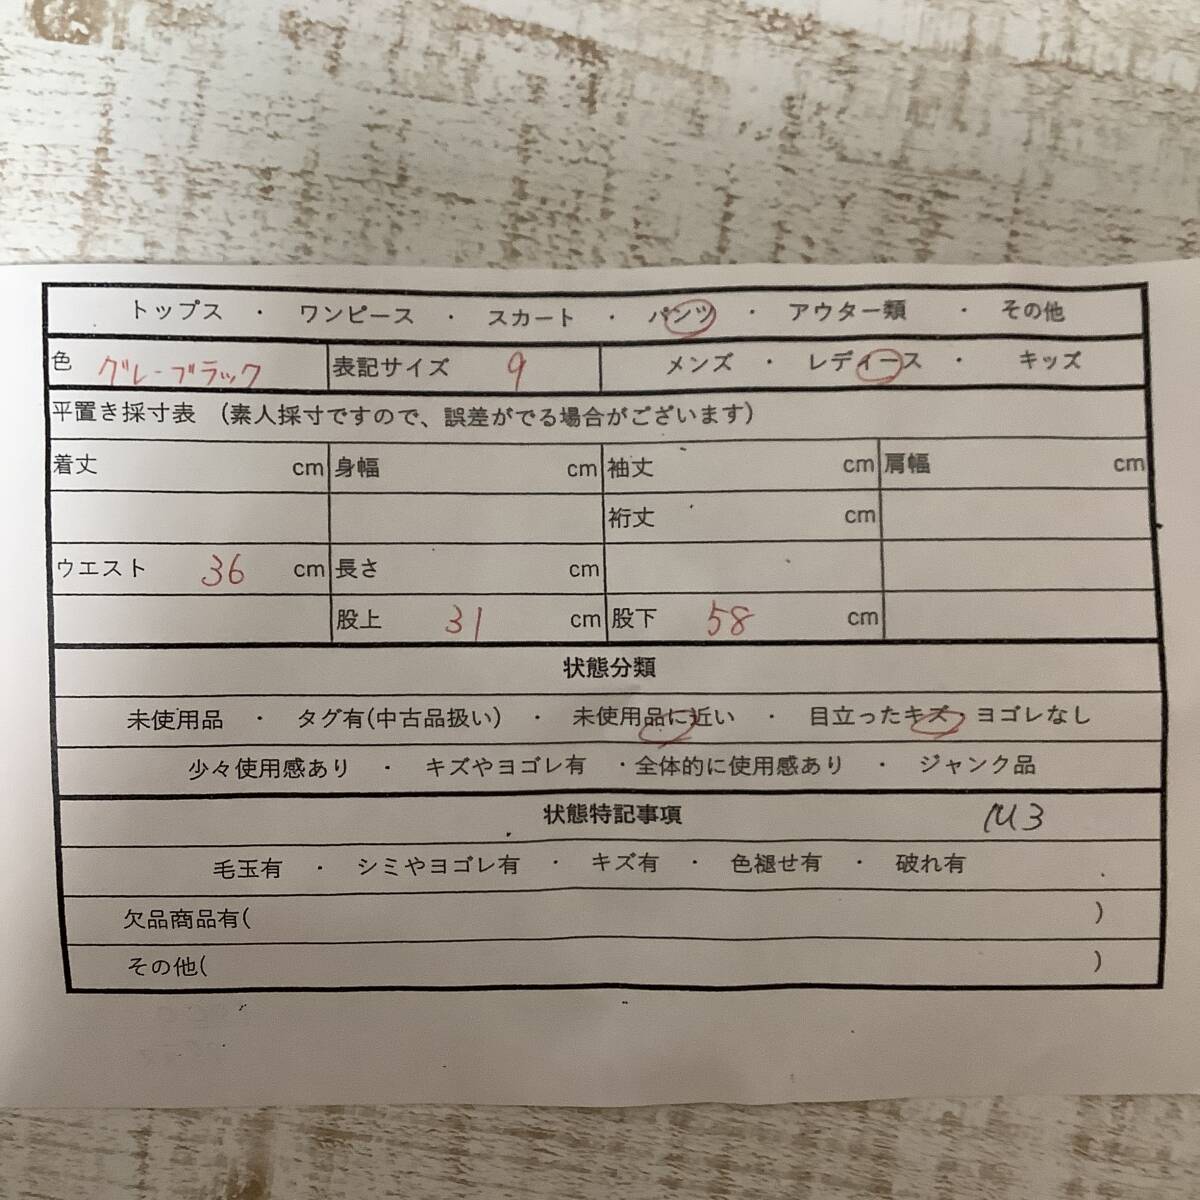 トップス ・ ワンピース ・ スカート ・ パンツ ・ アウター類 ・ その他
色 グレーブラック 表記サイズ 9 メンズ ・ レディース ・ キッズ
平置き採寸表 (素人採寸ですので、誤差がでる場合がございます)
着丈 cm 身幅 cm 袖丈 cm 肩幅 cm
裄丈 cm
ウエスト 36 cm 長さ cm
股上 31 cm 股下 58 cm
状態分類
未使用品 ・ タグ有(中古品扱い) ・ 未使用品に近い ・ 目立ったキズ ヨゴレなし
少々使用感あり ・ キズやヨゴレ有 ・全体的に使用感あり ・ ジャンク品
状態特記事項 M3
毛玉有 ・ シミやヨゴレ有 ・ キズ有 ・ 色褪せ有 ・ 破れ有
欠品商品有( )
その他( )